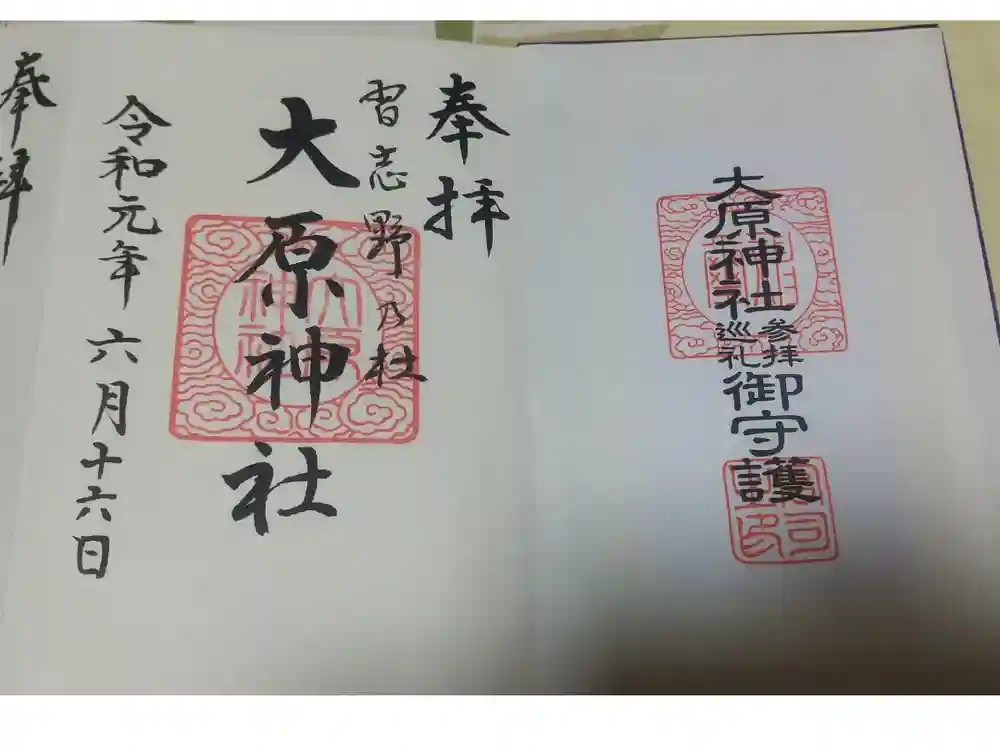 大原神社
参拝
巡礼
御守護
奉拝
習志野乃杜
大原神社
大原
神社
令和元年六月十六日
奉拝